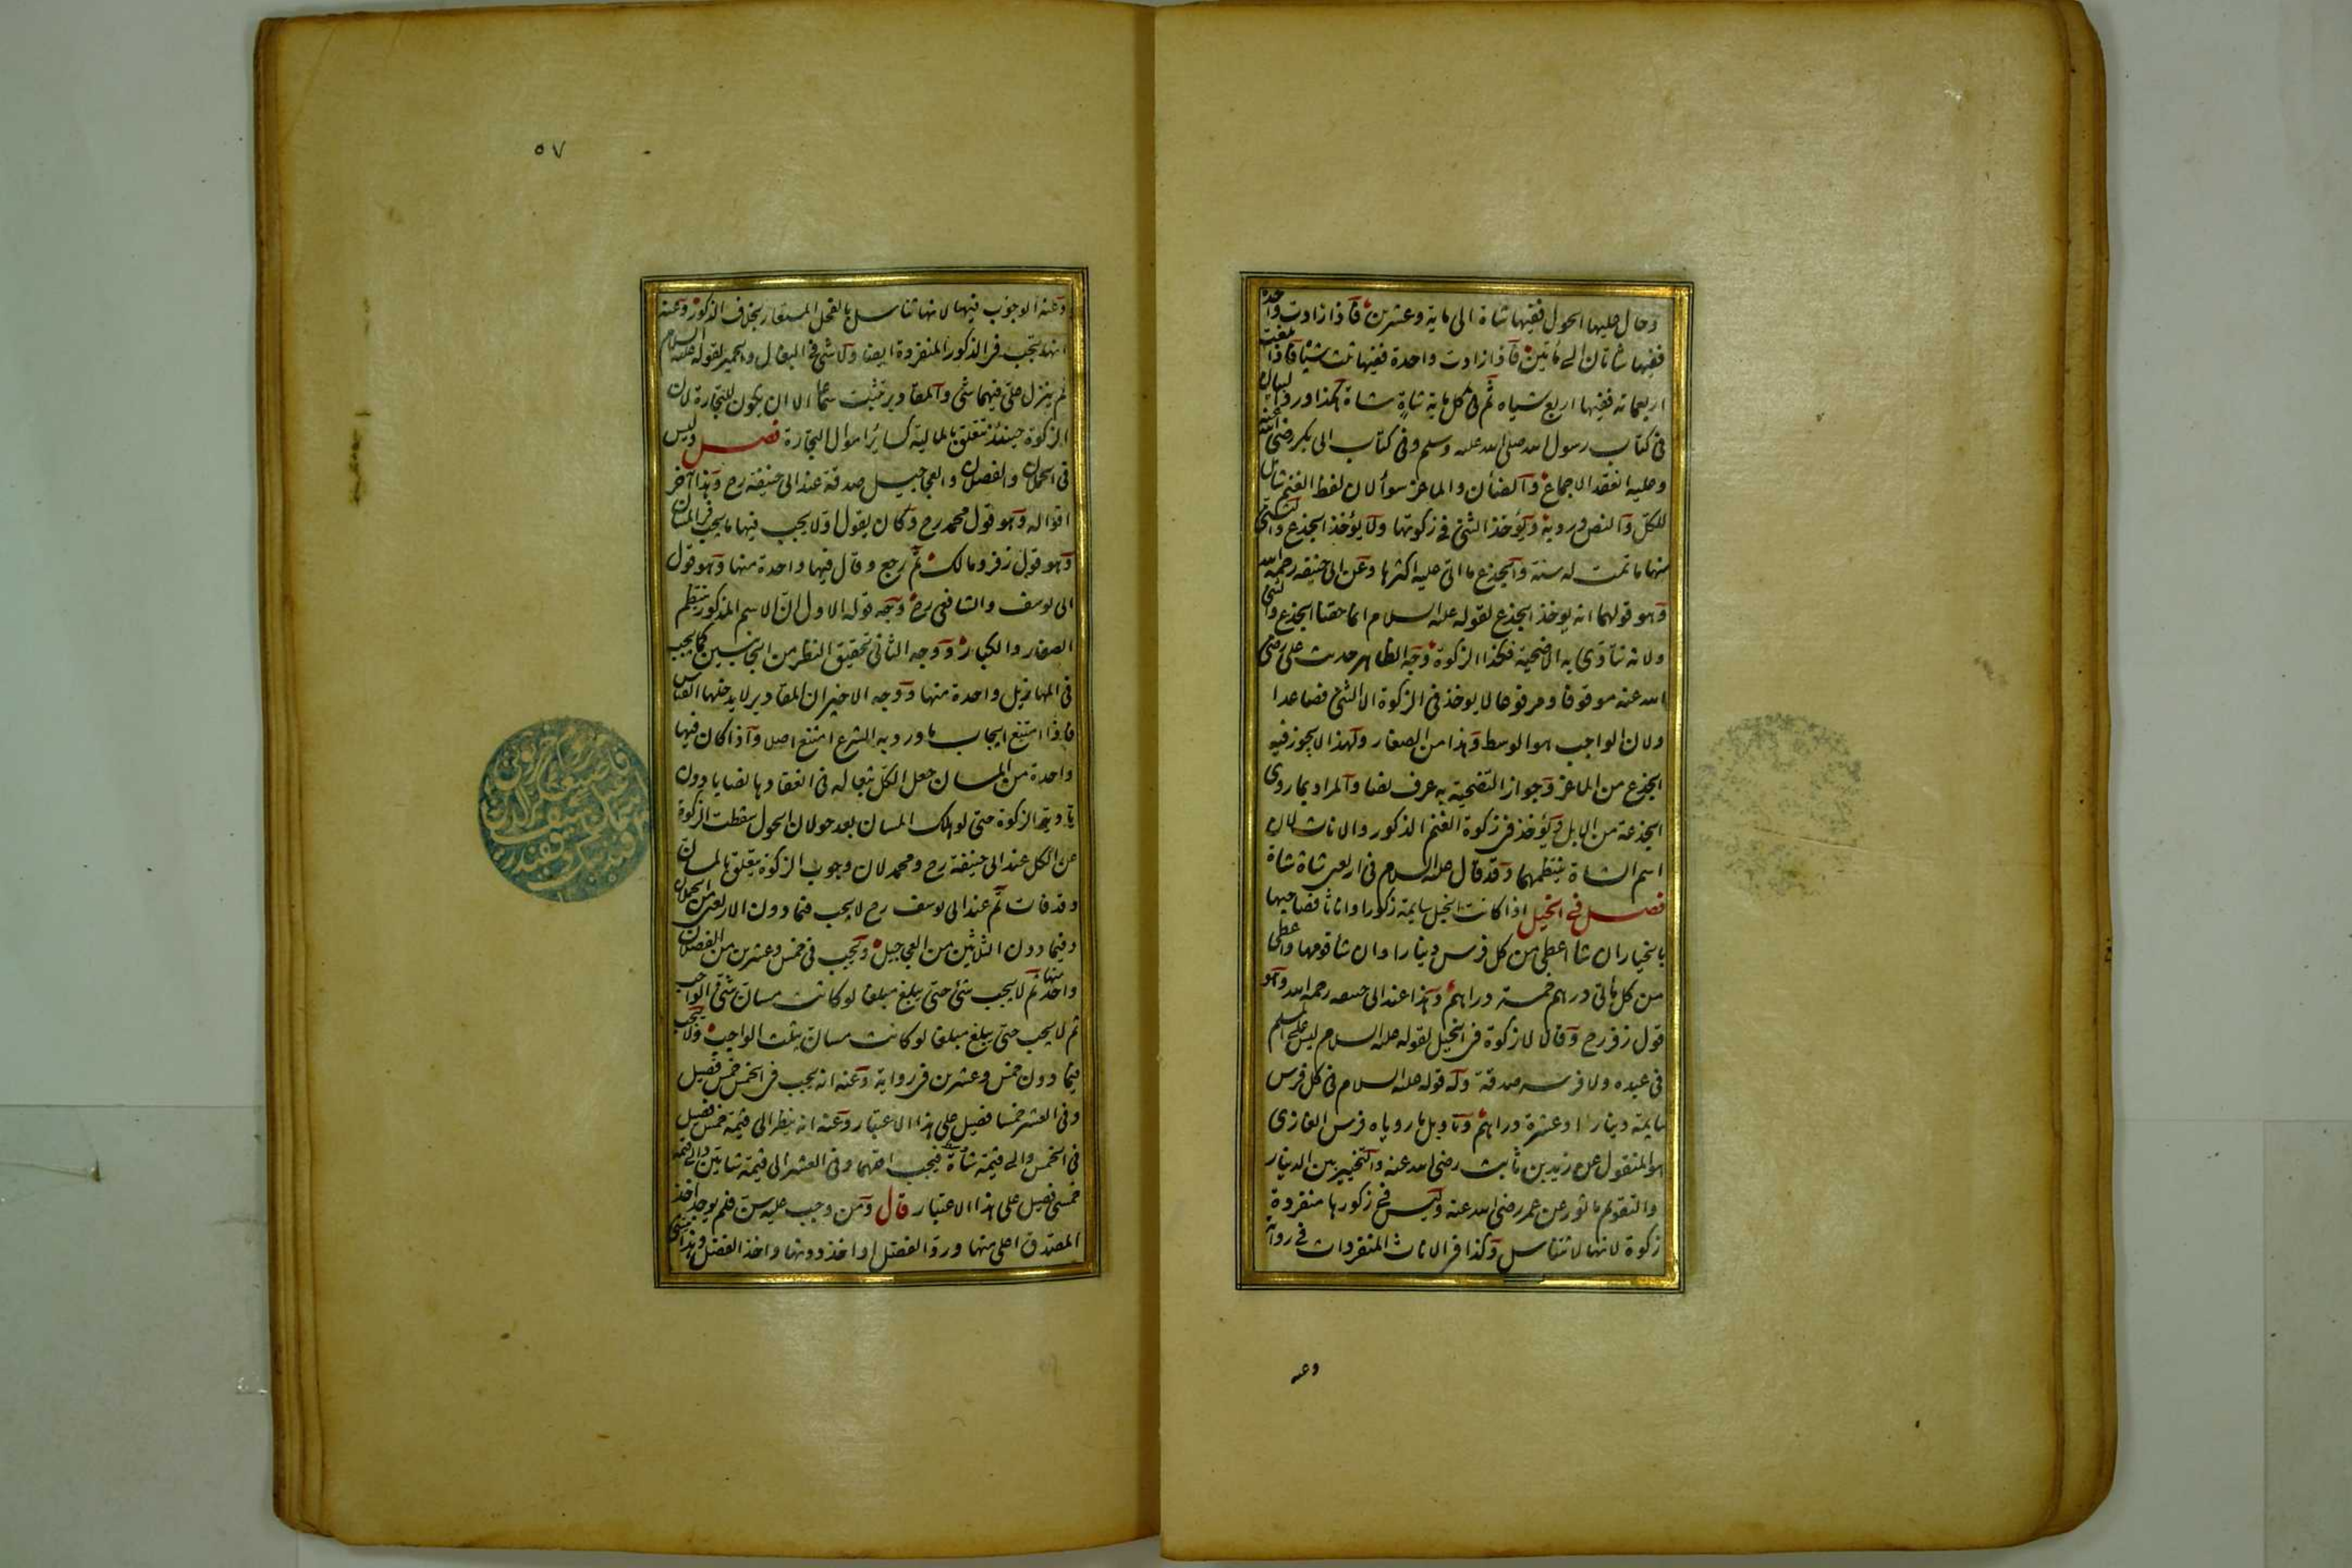 وحال عليها الحول ففيها شاة الى ماية وعشرين فاذا زادت واحدة
ففيها شاتان الى مأتين فاذا زادت واحدة ففيها ثلث شياه فاذا بلغت
اربعماته ففيها اربع شياه ثم فى كل ماية شاة شاة هكذا ورد البيان
فى كتاب رسول الله صلى الله عليه وسلم وفى كتاب ابى بكر رضى الله عنه
وعليه انعقد الاجماع والضأن والماعز سوأ لان لفظ الغنم شامل
للكل والنص ورد به ويؤخذ الثنى فى زكوتها ولا يؤخذ الجذع والثنى
منها ما تمت له سنة والجذع ما اتى عليه اكثرها وعن ابى حنيفه رحمه الله
وهو قولهما انه يوخذ الجذع لقوله عليه السلام انما حقنا الجذع والثنى
ولانه تتأدى به الاضحية فكذا الزكوة وجه الظاهر حديث على رضى
الله عنه موقوفا ومرفوعا لا يوخذ فى الزكوة الا الثنى فصاعدا
ولان الواجب هو الوسط وهذا من الصغار ولهذا لا يجوز فيه
الجذع من الماعز وجواز التضحية به عرف نصا والمراد بما روى
الجذعة من الابل ويؤخذ فى زكوة الغنم الذكور والاناث لان
اسم الشاة ينتظمهما وقد قال عليه السلام فى اربعين شاة شاة
فصل فى الخيل اذا كانت الخيل سايمة ذكورا واناثا فصاحبها
بالخيار ان شا اعطى من كل فرس دينارا وان شأ قومها واعطى
من كل مأتى درهم خمسة دراهم وهذا عند ابى حنيفه رحمه الله وهو
قول زفر رح وقالا لا زكوة فى الخيل لقوله عليه السلام ليس على المسلم
فى عبده ولا فرسه صدقة وله قوله عليه السلام فى كل فرس
سايمة دينار او عشرة دراهم وتاويل ما روياه فرس الغازى
هو المنقول عن زيد بن ثابت رضى الله عنه والتخيير بين الدينار
والتقويم ماثور عن عمر رضى الله عنه وليس فى ذكورها منفردة
زكوة لانها لا تتناسل وكذا فى الاناث المنفردات فى رواية
وعنه
٥٧
وعنه الوجوب فيها لانها تتناسل بالفحل المستعار بخلاف الذكور وعنه
انه تجب فى الذكور المنفردة ايضا ولا شى فى البغال والحمير لقوله عليه السلام
لم ينزل على فيهما شى والمقادير تثبت سماعا الا ان يكون للتجارة لان
الزكوة حينئذ تتعلق بالمالية كسائر اموال التجارة فصل وليس
فى الحملان والفصلان والعجاجيل صدقة عند ابى حنيفة رح وهذا آخر
اقواله وهو قول محمد رح وكان يقول اولا يجب فيها ما يجب فى المسان
وهو قول زفر ومالك ثم رجع وقال فيها واحدة منها وهو قول
ابى يوسف والشافعى رح وجه قوله الاول ان الاسم المذكور ينتظم
الصغار والكبار ووجه الثانى تحقيق النظر من الجانبين كما يجب
فى المهازيل واحدة منها ووجه الاخير ان المقادير لا يدخلها القياس
فاذا امتنع ايجاب ما ورد به الشرع امتنع اصلا واذا كان فيها
واحدة من المسان جعل الكل تبعا له فى انعقادها نصابا دون
تادية الزكوة حتى لو هلك المسان بعد حولان الحول سقطت الزكوة
عن الكل عند ابى حنيفة رح ومحمد لان وجوب الزكوة يتعلق بالمسان
وقد فات ثم عند ابى يوسف رح لا يجب فيما دون الاربعين من الحملان
وفيما دون الثلاثين من العجاجيل ويجب فى خمس وعشرين من الفصلان
واحد منها ثم لا يجب شئ حتى يبلغ مبلغا لو كانت مسان ثنى الواجب
ثم لا يجب حتى يبلغ مبلغا لو كانت مسان يثلث الواجب ولا يجب
فيما دون خمس وعشرين فى رواية وعنه انه يجب فى الخمس خمس فصيل
وفى العشر خمسا فصيل على هذا الاعتبار وعنه انه ينظر الى قيمة خمس فصيل
فى الخمس والى قيمة شاة وسط فيجب اقلهما وفى العشر الى قيمة شاتين والى قيمة
خمسى فصيل على هذا الاعتبار قال ومن وجب عليه سن فلم يوجد اخذ
المصدق اعلى منها ورد الفضل او اخذ دونها واخذ الفضل وهذا يبتنى